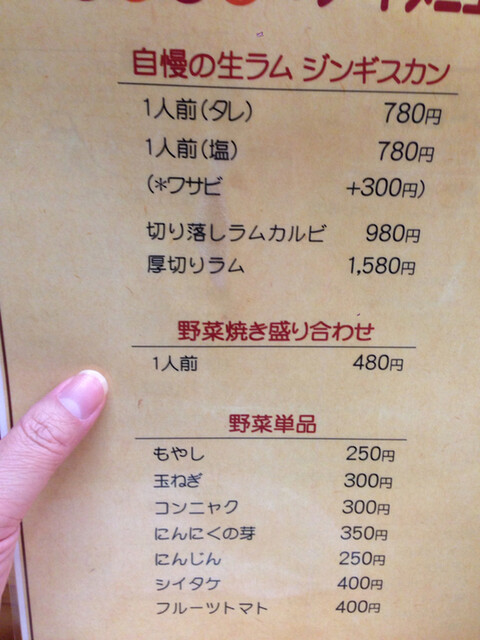 自慢の生ラム ジンギスカン
1人前(タレ) 780円
1人前(塩) 780円
(*ワサビ +300円)
切り落しラムカルビ 980円
厚切りラム 1,580円
野菜焼き盛り合わせ
1人前 480円
野菜単品
もやし 250円
玉ねぎ 300円
コンニャク 300円
にんにくの芽 350円
にんじん 250円
シイタケ 400円
フルーツトマト 400円